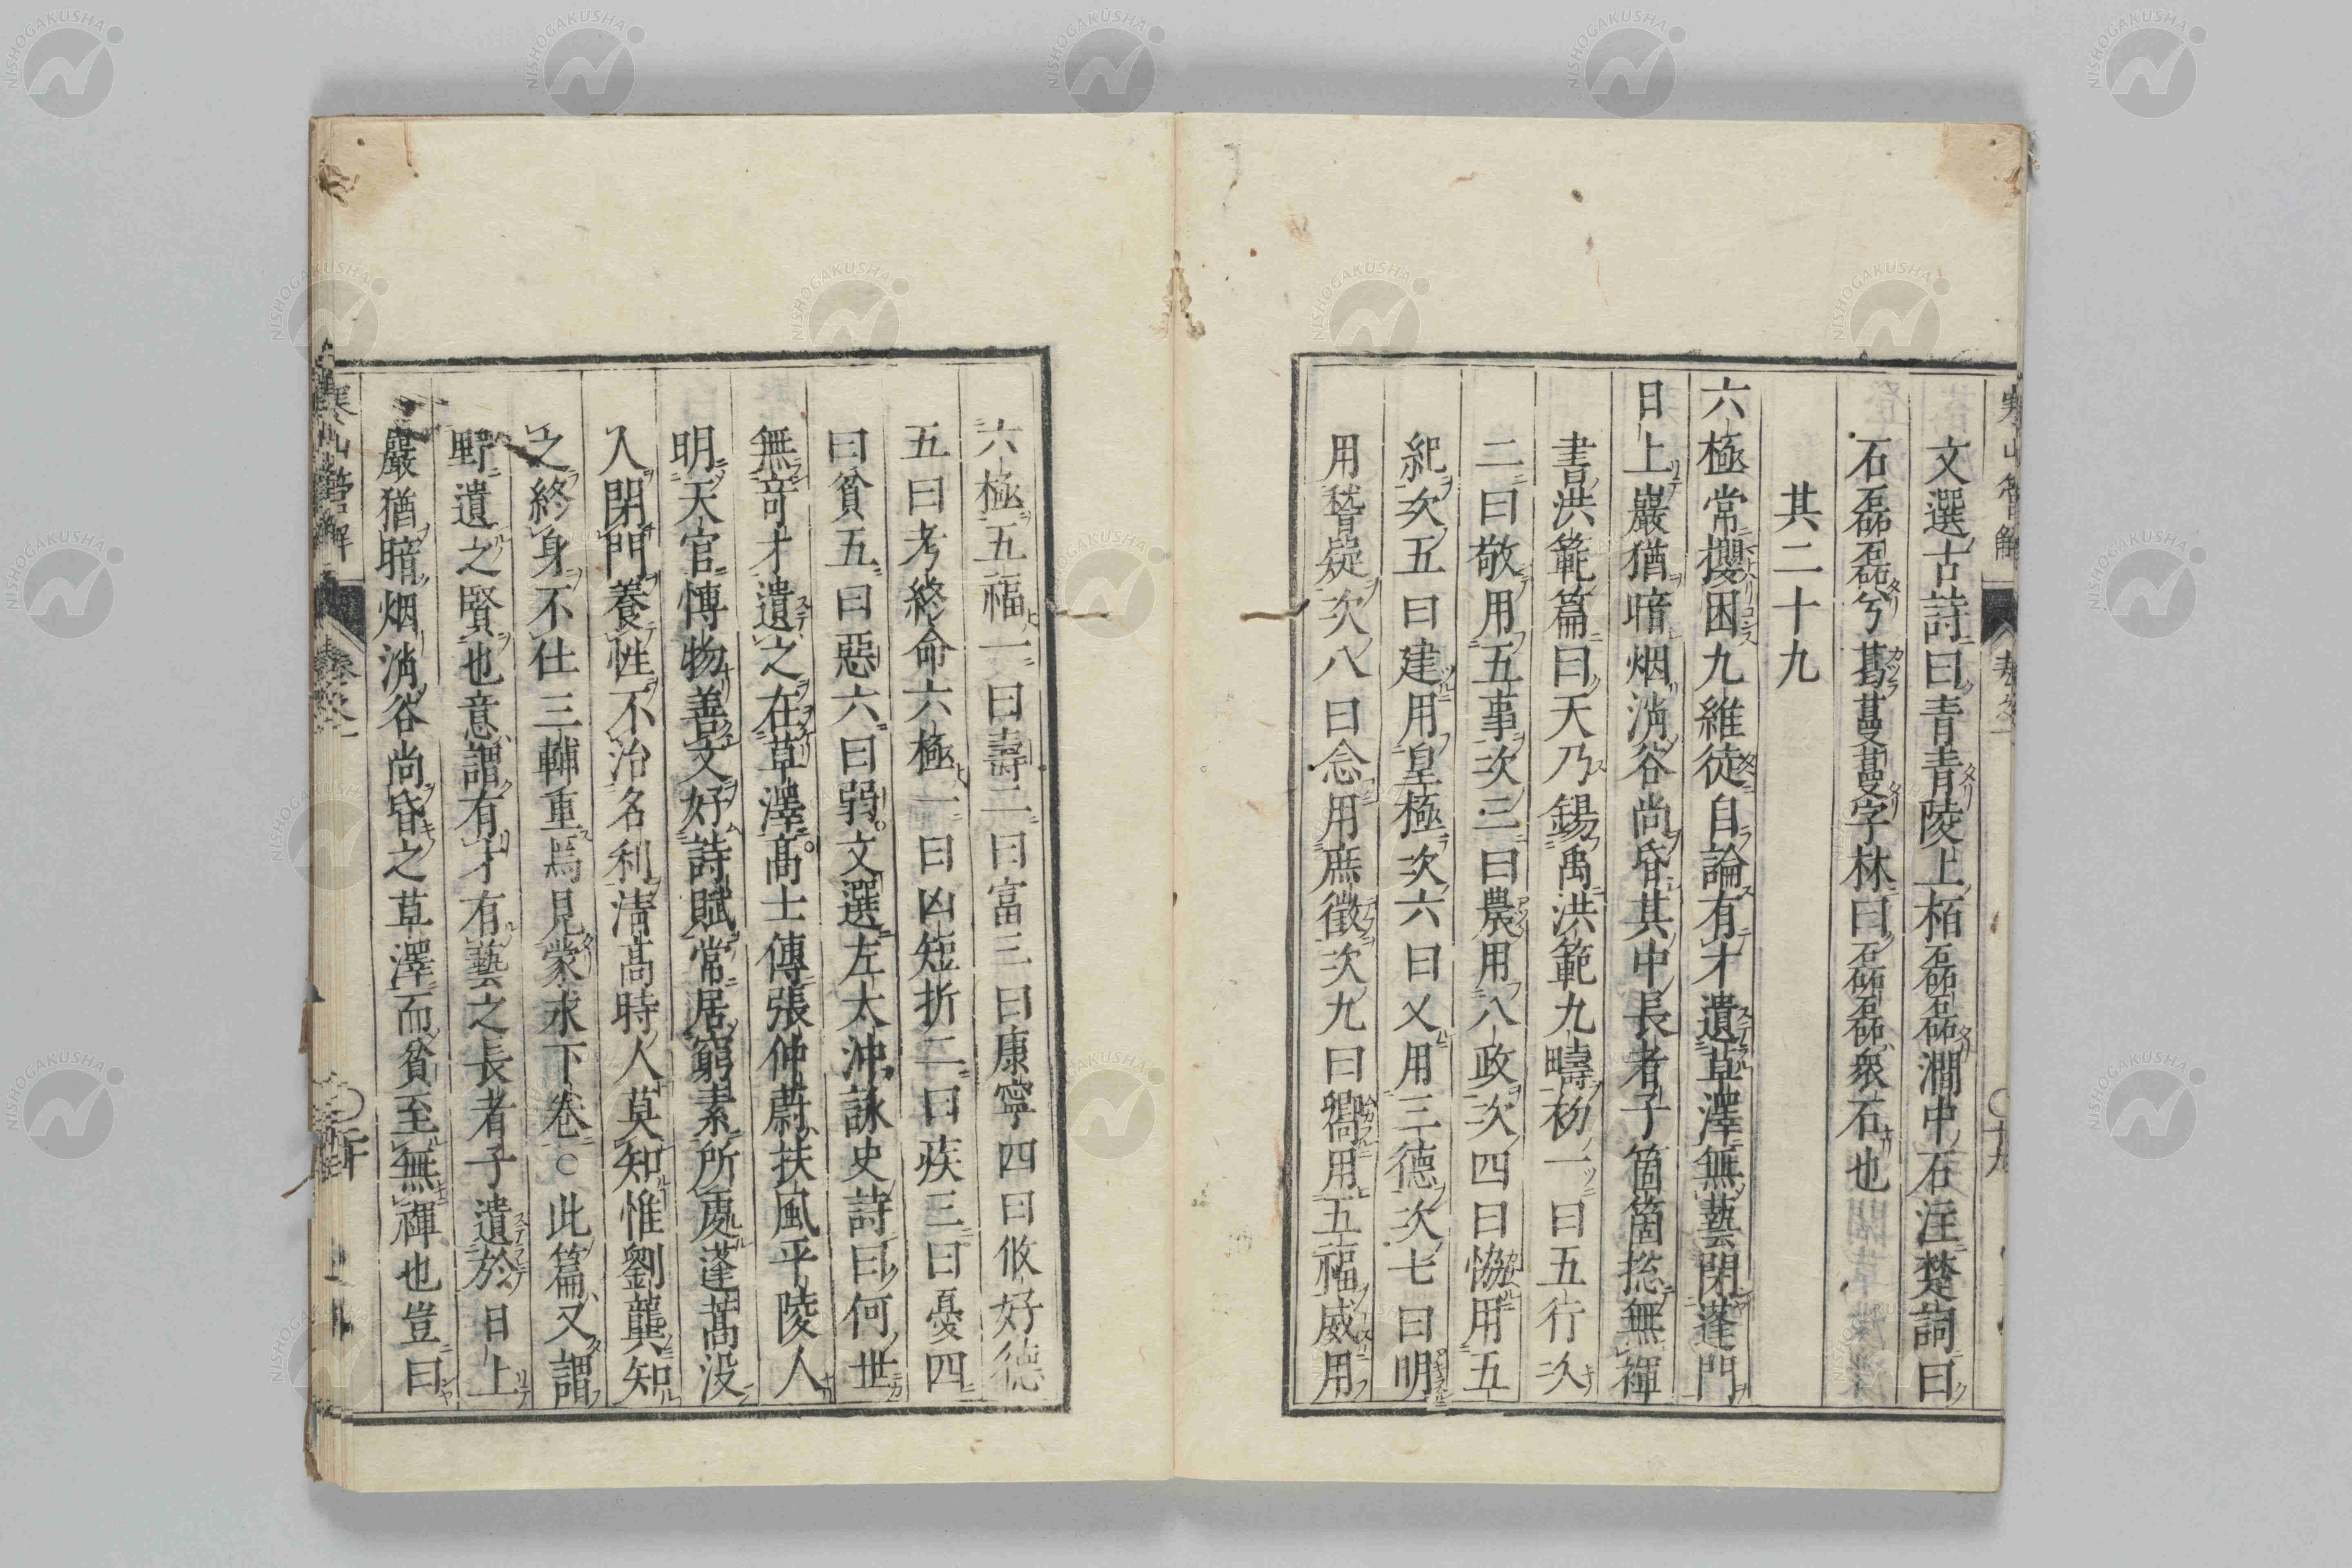 文選古詩曰青青陵上栢磊磊澗中石注楚詞曰
石磊磊兮葛蔓蔓字林曰磊磊衆石也
其二十九
六極常攖困九維徒自論有才遺草澤無藝閉蓬門
日上巖猶暗烟消谷尚昏其中長者子箇箇揔無褌
書洪範篇曰天乃錫禹洪範九疇初一曰五行次
二曰敬用五事次三曰農用八政次四曰恊用五
紀次五曰建用皇極次六曰乂用三德次七曰明
用稽疑次八曰念用庶徵次九曰嚮用五福威用
六極五福一曰壽二曰富三曰康寧四曰攸好德
五曰考終命六極一曰凶短折二曰疾三曰憂四
曰貧五曰惡六曰弱。文選左太沖詠史詩曰何世
無竒才遺之在草澤。髙士傳張仲蔚扶風平陵人
明天官博物善文好詩賦常居窮素所處蓬蒿没
人閉門養性不治名利清髙時人莫知惟劉龔知
之終身不仕三輔重焉見蒙求下卷○此篇又謂
野遺之賢也意謂有才有藝之長者子遺於日上
巖猶暗烟消谷尚昏之草澤而貧至無褌也豈曰
寒山管解